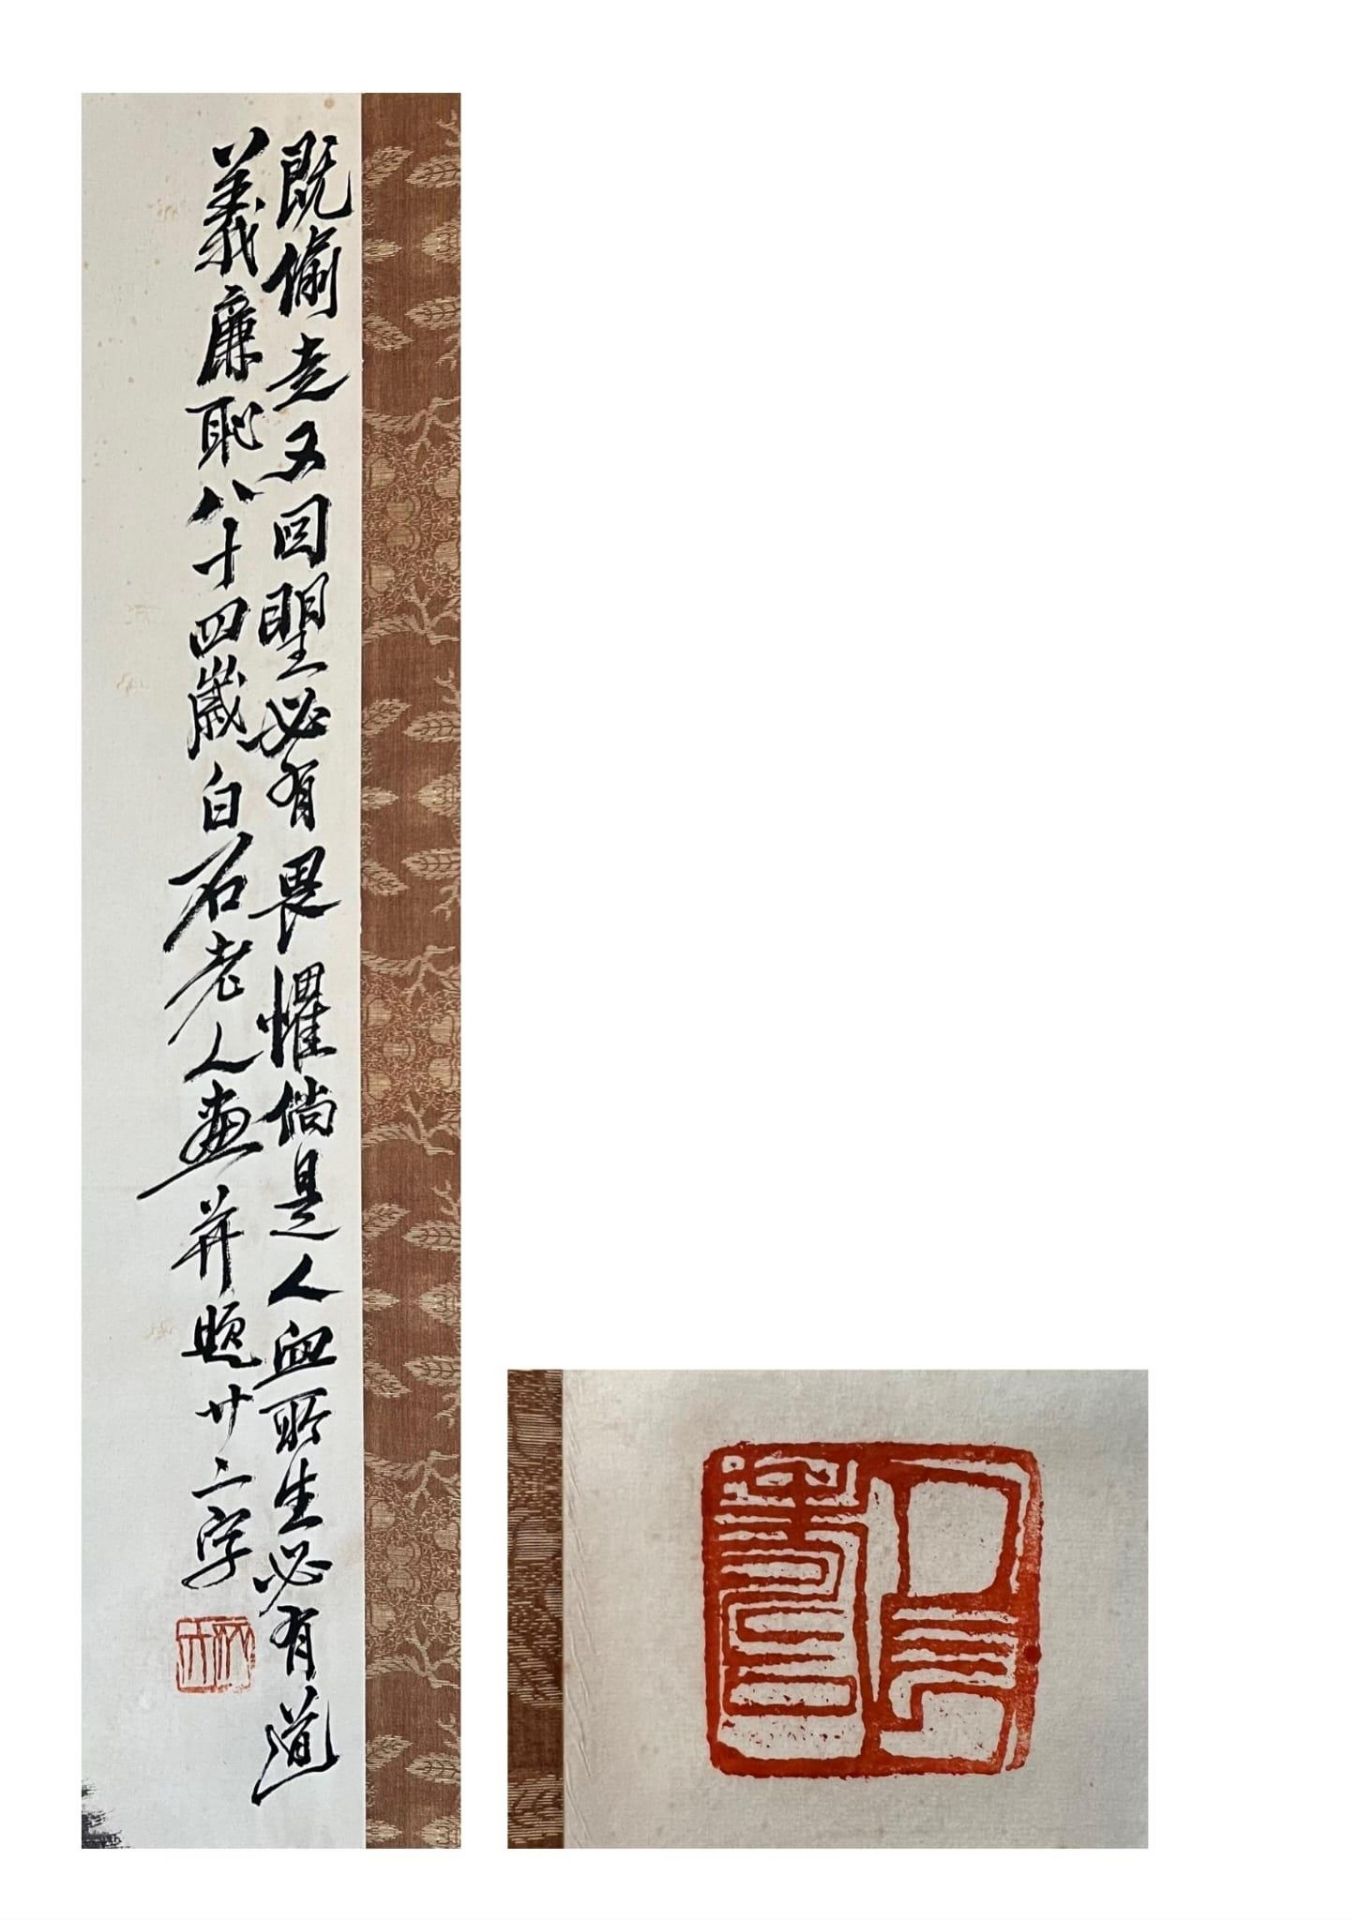 既偷走又回朢必有畏懼倘是人血所生必有道
義廉恥八十四歲白石老人畫并題廿二字